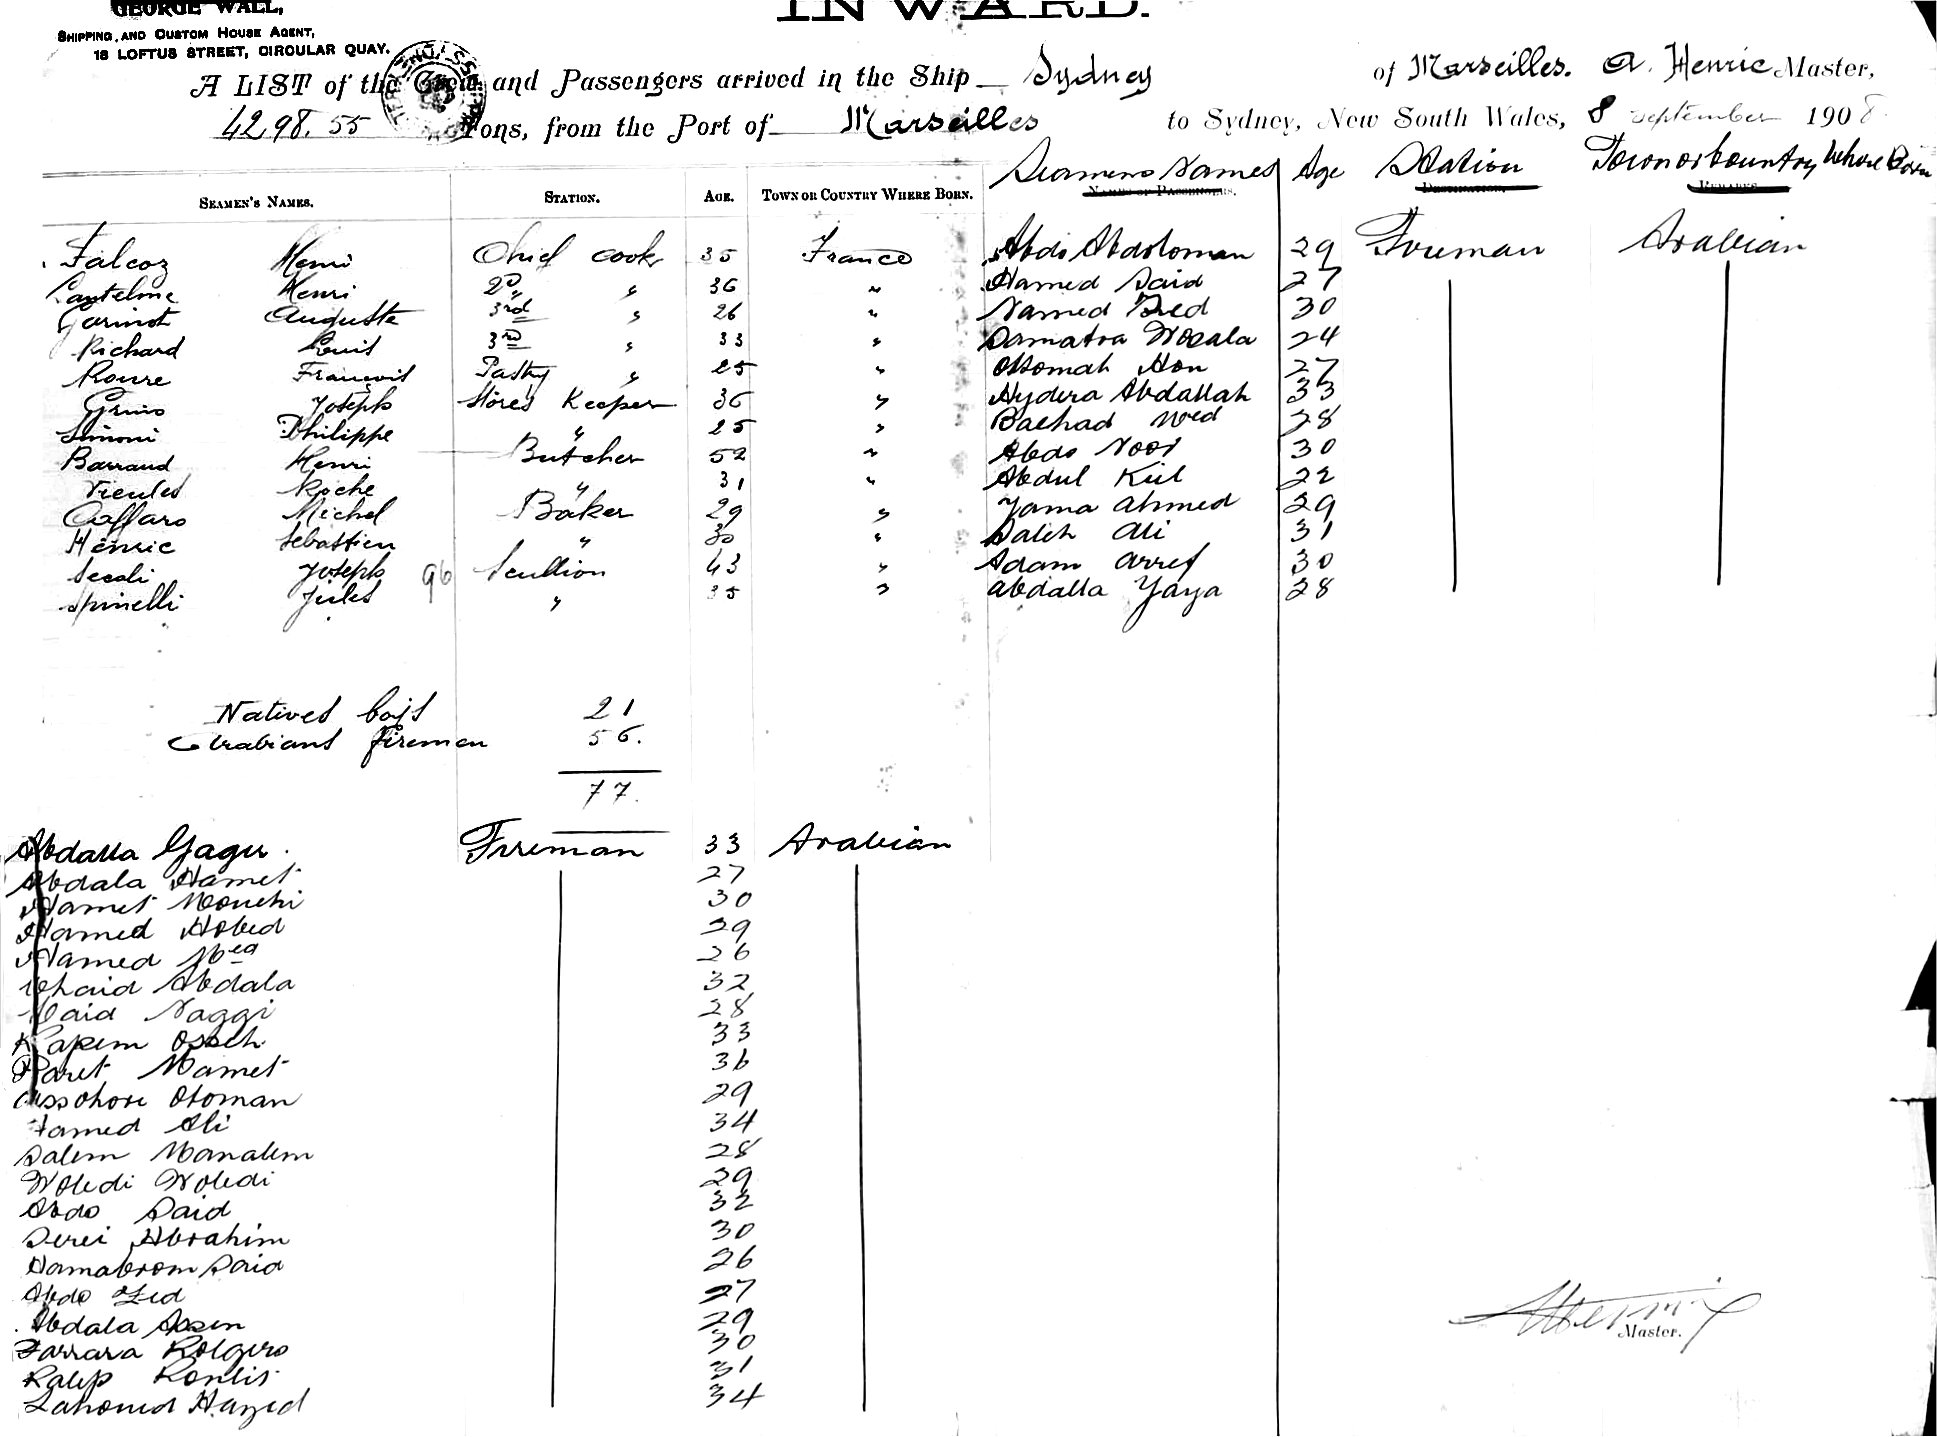 GEORGE WALL,
SHIPPING, AND CUSTOM HOUSE AGENT,
18 LOFTUS STREET, CIRCULAR QUAY.
INWARD.
A LIST of the Crew and Passengers arrived in the Ship Sydney of Marseilles. A. Henric Master,
4298.55 Tons, from the Port of Marseilles to Sydney, New South Wales, 8 September 1908
SEAMEN'S NAMES. STATION. AGE. TOWN OR COUNTRY WHERE BORN. Seamens Names Age Station Town or Country Where Born
Falcoz Henri Chief cook 35 France Abdo Abdoloman 29 Fireman Arabian
Cantelme Henri 2D " " 36 " Hamed Said 27
Garinot Auguste 3rd " 26 " Named Zied 30
Richard Louis 3rd " 33 " Samatra Wosala 24
Roure François Pastry " 25 " Ottomah Hon 27
Joseph Stores Keeper 36 " Hydera Abdallah 33
Simoni Philippe " 25 " Baehad 28
Barraud Henri Butcher 52 " Abdo Noor 30
Vieules Roche " 31 " Abdul Kiel 22
Caffaro Michel Baker 29 " Yama Ahmed 29
Henric Sebastien " 30 " Saleh Ali 31
Secoli Joseph 96 Scullion 43 " Adam Arref 30
Spinelli Jules " 35 " Abdalla Yaya 28
Natives boys 21
Arabians firemen 56.
77.
Abdalla Gagu. Fireman 33 Arabian
Abdala Hamet 27
Hamet Mouchi 30
Hamed Hobed 29
Hamed 26
Chaid Abdala 32
Said Naggi 28
Kapem Osseh 33
Paret Mamet 36
Assohore Otoman 29
Hamed Ali 34
Salem Manalem 28
Woledi Woledi 29
Abdo Said 32
Serei Abrahim 30
Hamabrom Said 26
Abdo Zed 27
Abdala Assen 29
Farrara Rolgero 30
Ralip Rontis 31
Lahoued Hayed 34
Master.